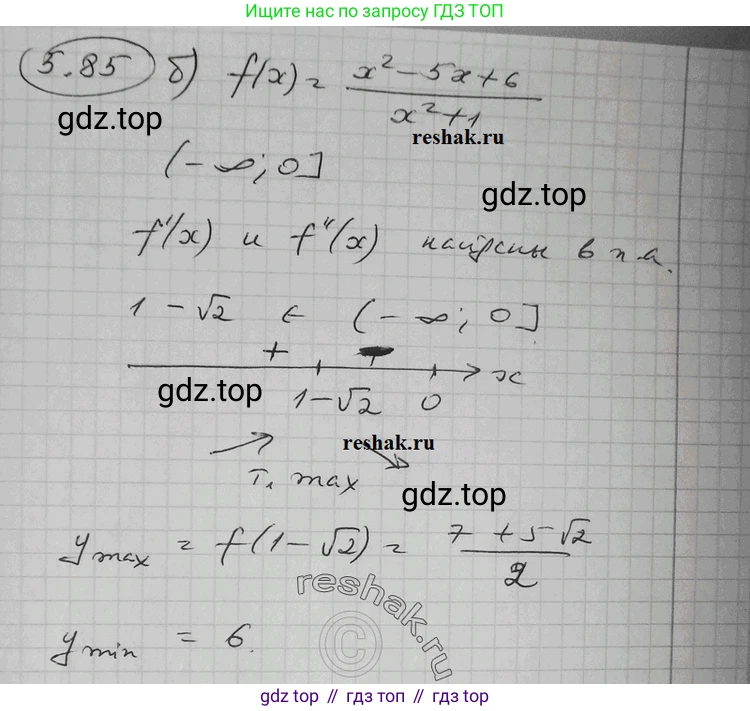 Ищите нас по запросу ГДЗ ТОП
5.85 б) f(x) = (x² - 5x + 6)/(x² + 1)
gdz.top
reshak.ru
(-∞; 0]
gdz.top
f'(x) и f''(x) найдены в п.а.
1 - √2 ∈ (-∞; 0]
+ -
gdz.top
1-√2 0 x
reshak.ru
т. max
gdz.top
y max = f(1-√2) = (7 + 5√2)/2
reshak.ru
©
y min = 6.
gdz top // гдз топ // gdz top